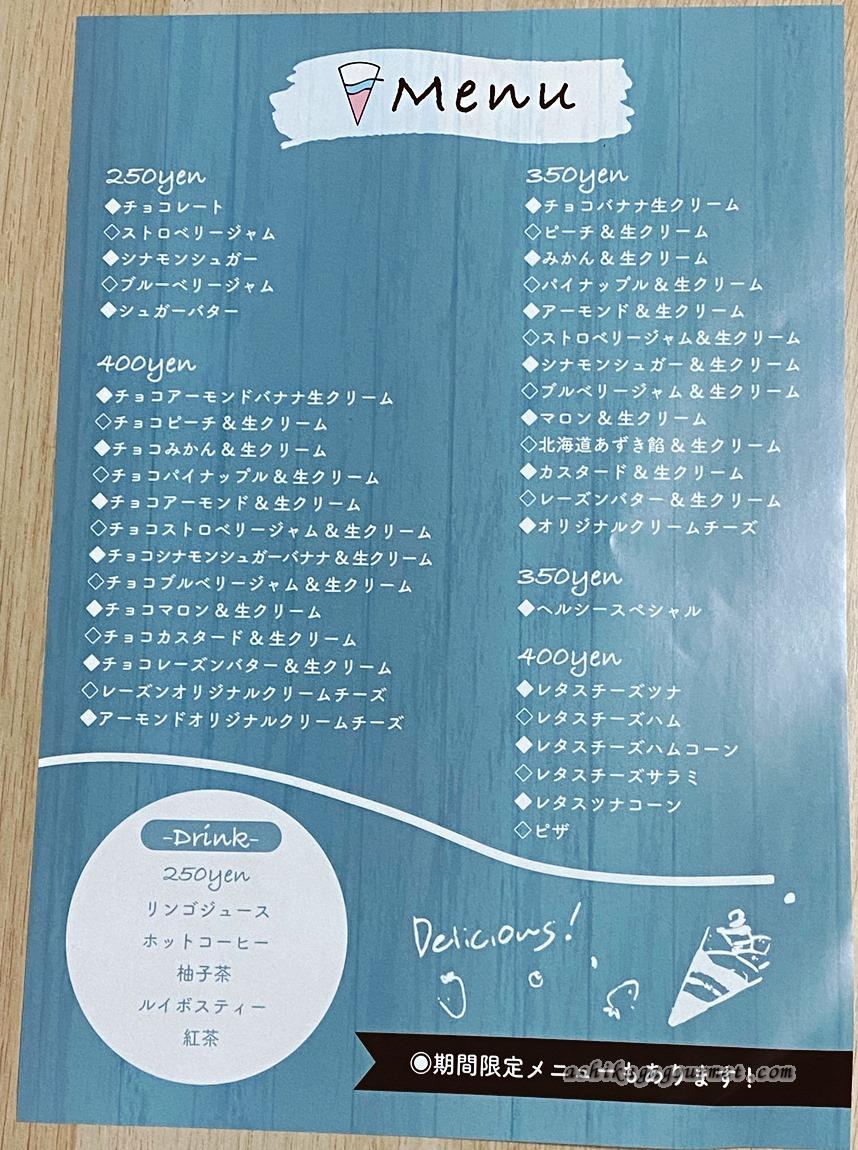 Menu
250yen
◆チョコレート
◇ストロベリージャム
◆シナモンシュガー
◇ブルーベリージャム
◆シュガーバター
400yen
◆チョコアーモンドバナナ生クリーム
◇チョコピーチ & 生クリーム
◆チョコみかん & 生クリーム
◇チョコパイナップル & 生クリーム
◆チョコアーモンド & 生クリーム
◇チョコストロベリージャム & 生クリーム
◆チョコシナモンシュガーバナナ & 生クリーム
◇チョコブルベリージャム & 生クリーム
◆チョコマロン & 生クリーム
◇チョコカスタード & 生クリーム
◆チョコレーズンバター & 生クリーム
◇レーズンオリジナルクリームチーズ
◆アーモンドオリジナルクリームチーズ
350yen
◆チョコバナナ生クリーム
◇ピーチ & 生クリーム
◆みかん & 生クリーム
◇パイナップル & 生クリーム
◆アーモンド & 生クリーム
◇ストロベリージャム& 生クリーム
◆シナモンシュガー & 生クリーム
◇ブルベリージャム & 生クリーム
◆マロン & 生クリーム
◇北海道あずき餡 & 生クリーム
◆カスタード & 生クリーム
◇レーズンバター & 生クリーム
◆オリジナルクリームチーズ
350yen
◆ヘルシースペシャル
400yen
◆レタスチーズツナ
◇レタスチーズハム
◆レタスチーズハムコーン
◇レタスチーズサラミ
◆レタスツナコーン
◇ピザ
-Drink-
250yen
リンゴジュース
ホットコーヒー
柚子茶
ルイボスティー
紅茶
Delicious!
◉期間限定メニューもあります!
ashikagagourmet.com